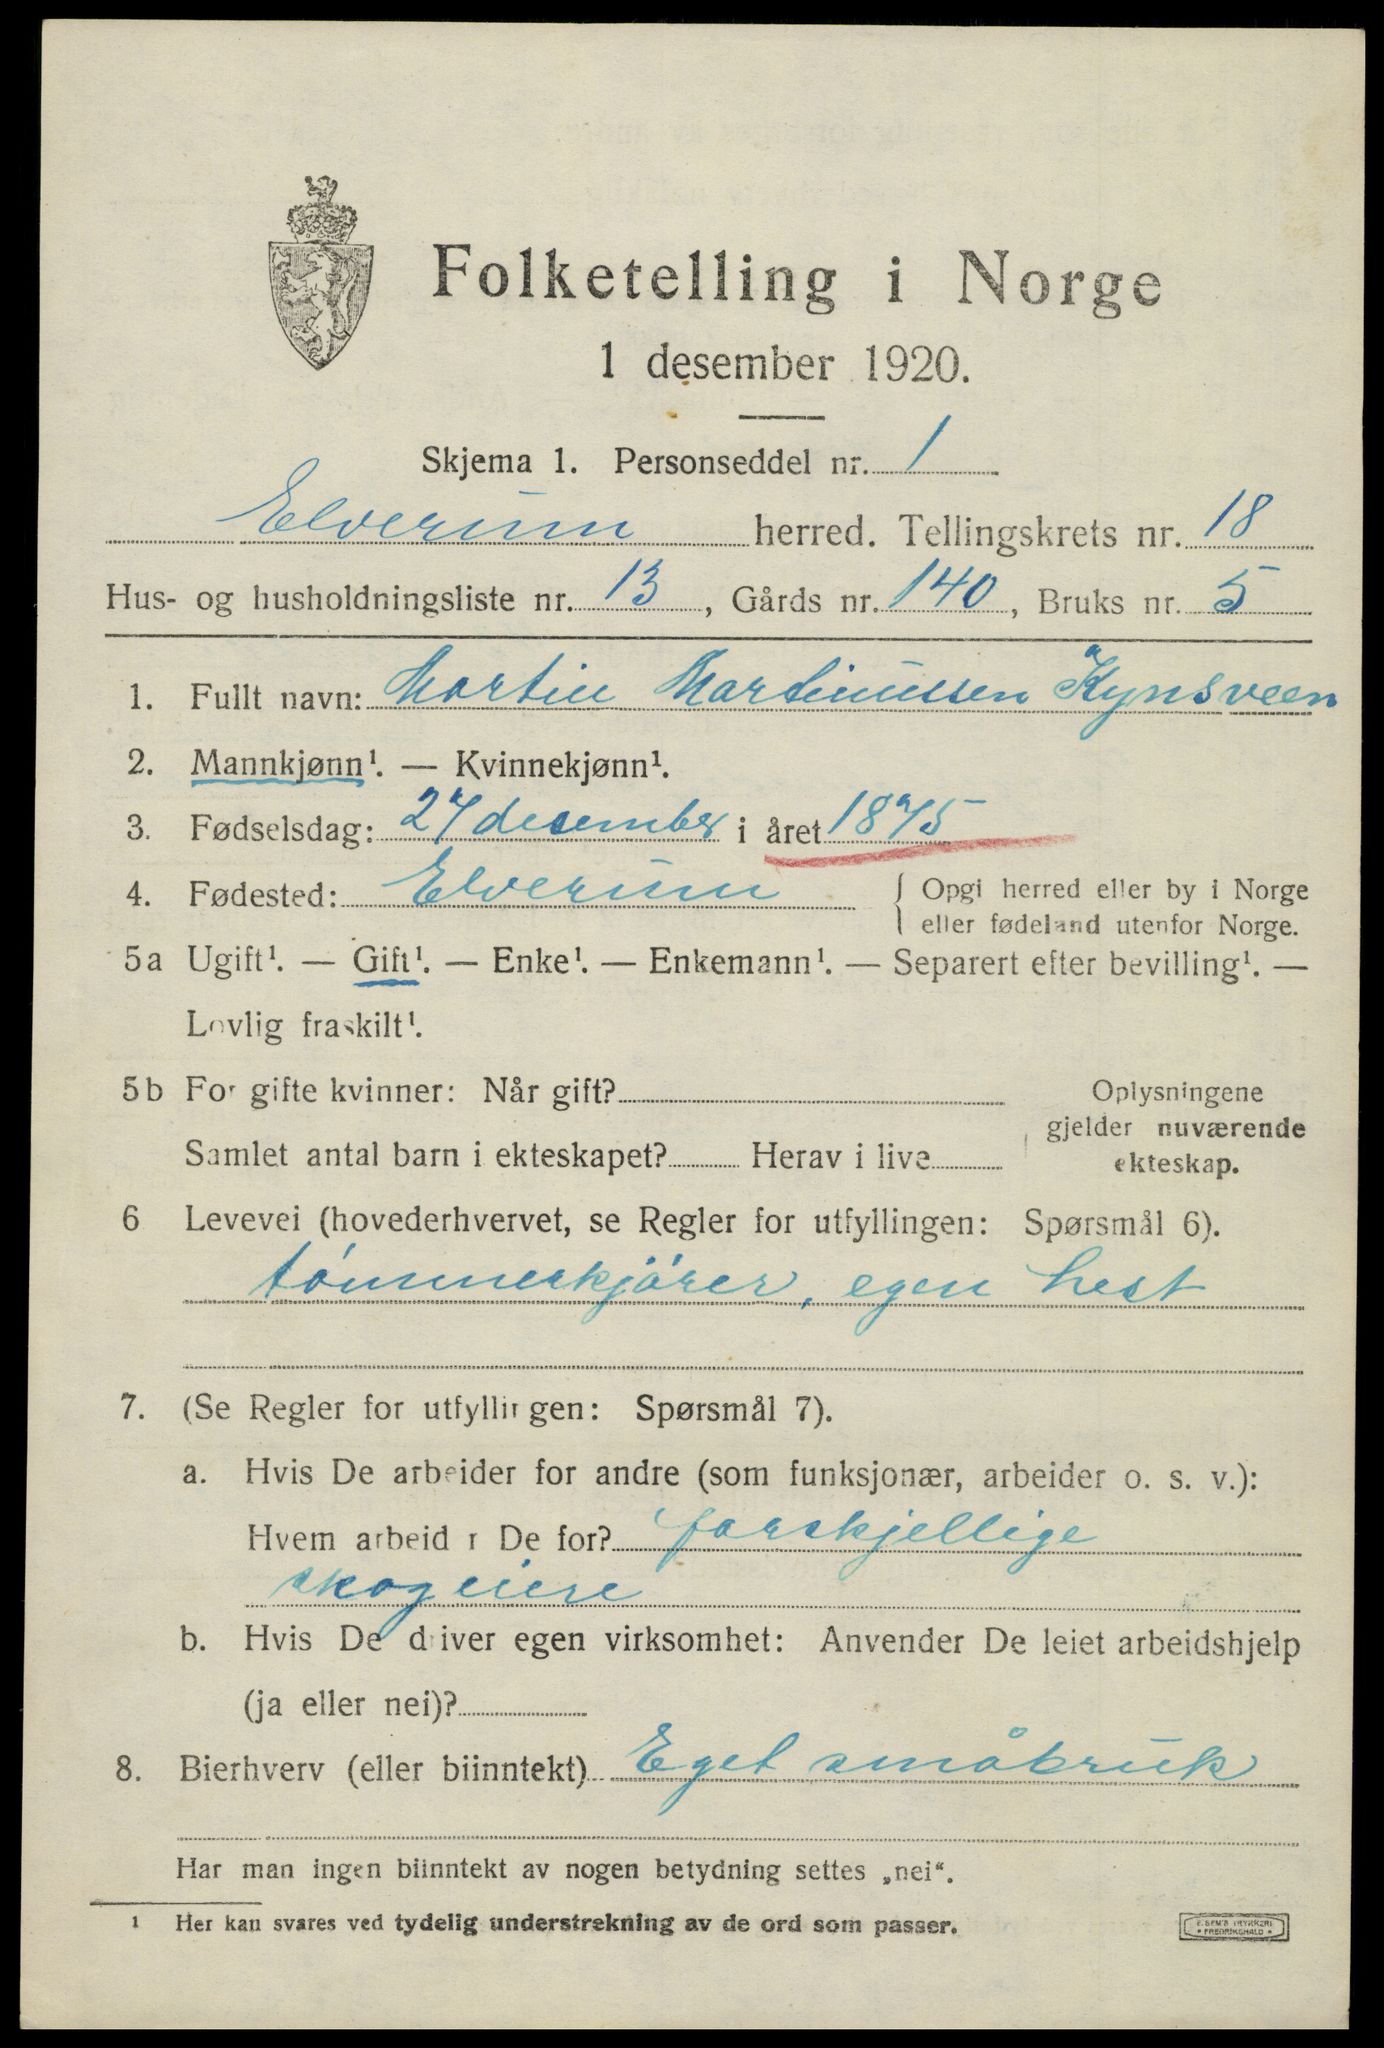 Folketelling i Norge
1 desember 1920.
Skjema 1. Personseddel nr. 1
Elverum herred. Tellingskrets nr. 18
Hus- og husholdningsliste nr. 13, Gårds nr. 140, Bruks nr. 5
1. Fullt navn: Martin Martinussen Kynsveen
2. Mannkjønn¹. — Kvinnekjønn¹.
3. Fødselsdag: 27 desember i året 1875
4. Fødested: Elverum { Opgi herred eller by i Norge
eller fødeland utenfor Norge.
5a Ugift¹. — Gift¹. — Enke¹. — Enkemann¹. — Separert efter bevilling¹. —
Lovlig fraskilt¹.
5b For gifte kvinner: Når gift? Oplysningene
gjelder nuværende
Samlet antal barn i ekteskapet? Herav i live ekteskap.
6 Levevei (hovederhvervet, se Regler for utfyllingen: Spørsmål 6).
tømmerkjører, egen hest
7. (Se Regler for utfyllingen: Spørsmål 7).
a. Hvis De arbeider for andre (som funksjonær, arbeider o. s. v.):
Hvem arbeid r De for? forskjellige
skogeiere
b. Hvis De driver egen virksomhet: Anvender De leiet arbeidshjelp
(ja eller nei)?
8. Bierhverv (eller biinntekt) Eget småbruk
Har man ingen biinntekt av nogen betydning settes „nei“.
¹ Her kan svares ved tydelig understrekning av de ord som passer.
FREDRIKSHALD